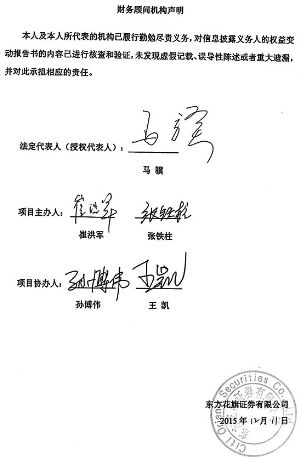 财务顾问机构声明
本人及本人所代表的机构已履行勤勉尽责义务，对信息披露义务人的权益变
动报告书的内容已进行核查和验证，未发现虚假记载、误导性陈述或者重大遗漏，
并对此承担相应的责任。
法定代表人（授权代表人）：马骥
马 骥
项目主办人：崔洪军 张铁柱
崔洪军 张铁柱
项目协办人：孙博伟 王凯
孙博伟 王 凯
东方花旗证券有限公司
2015年12月11日
Citi Orient Securities Co.